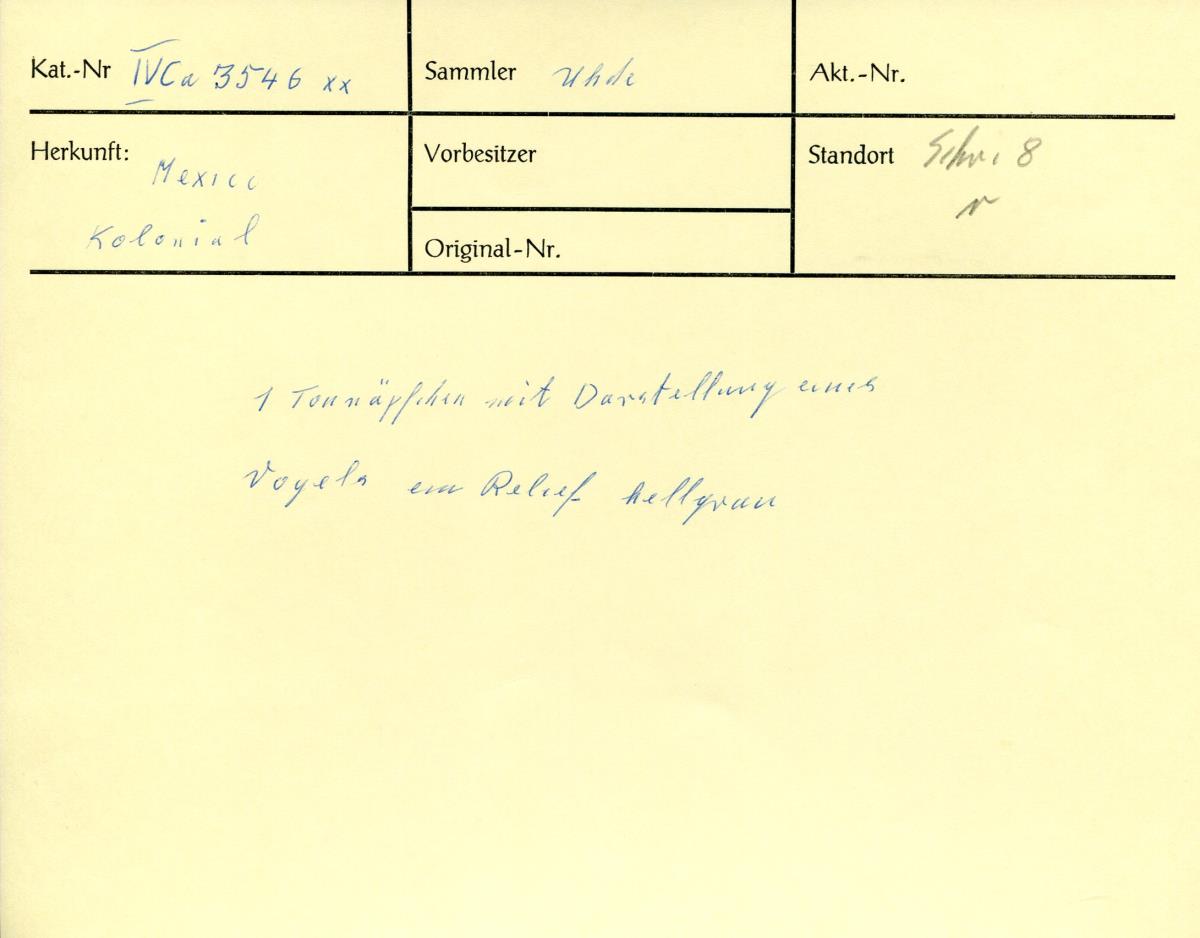 Kat.-Nr IV Ca 3546 xx
Sammler Uhde
Akt.-Nr.
Herkunft:
Mexico
Kolonial
Vorbesitzer
Original-Nr.
Standort 8
1 Tonnäpfchen mit Darstellung eines
Vogels em Relief hellgrau